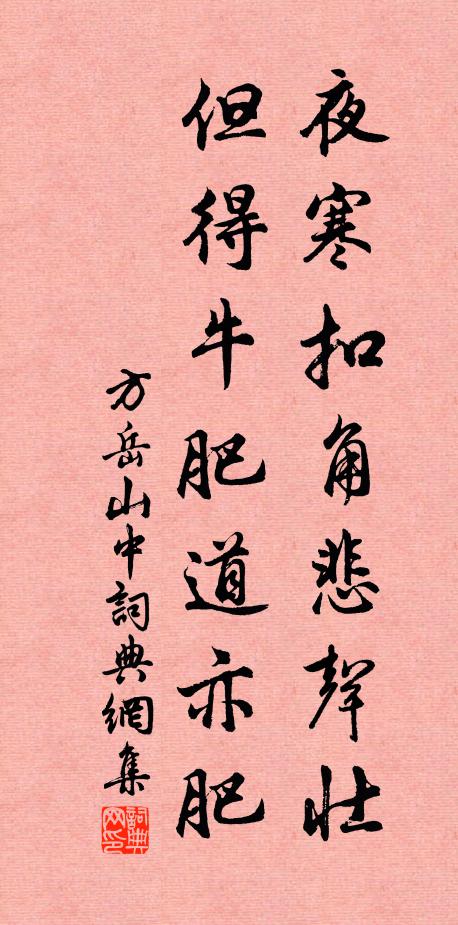 夜寒扣角悲聲壯
但得牛肥道亦肥
方岳山中詞典網集
詞典网印